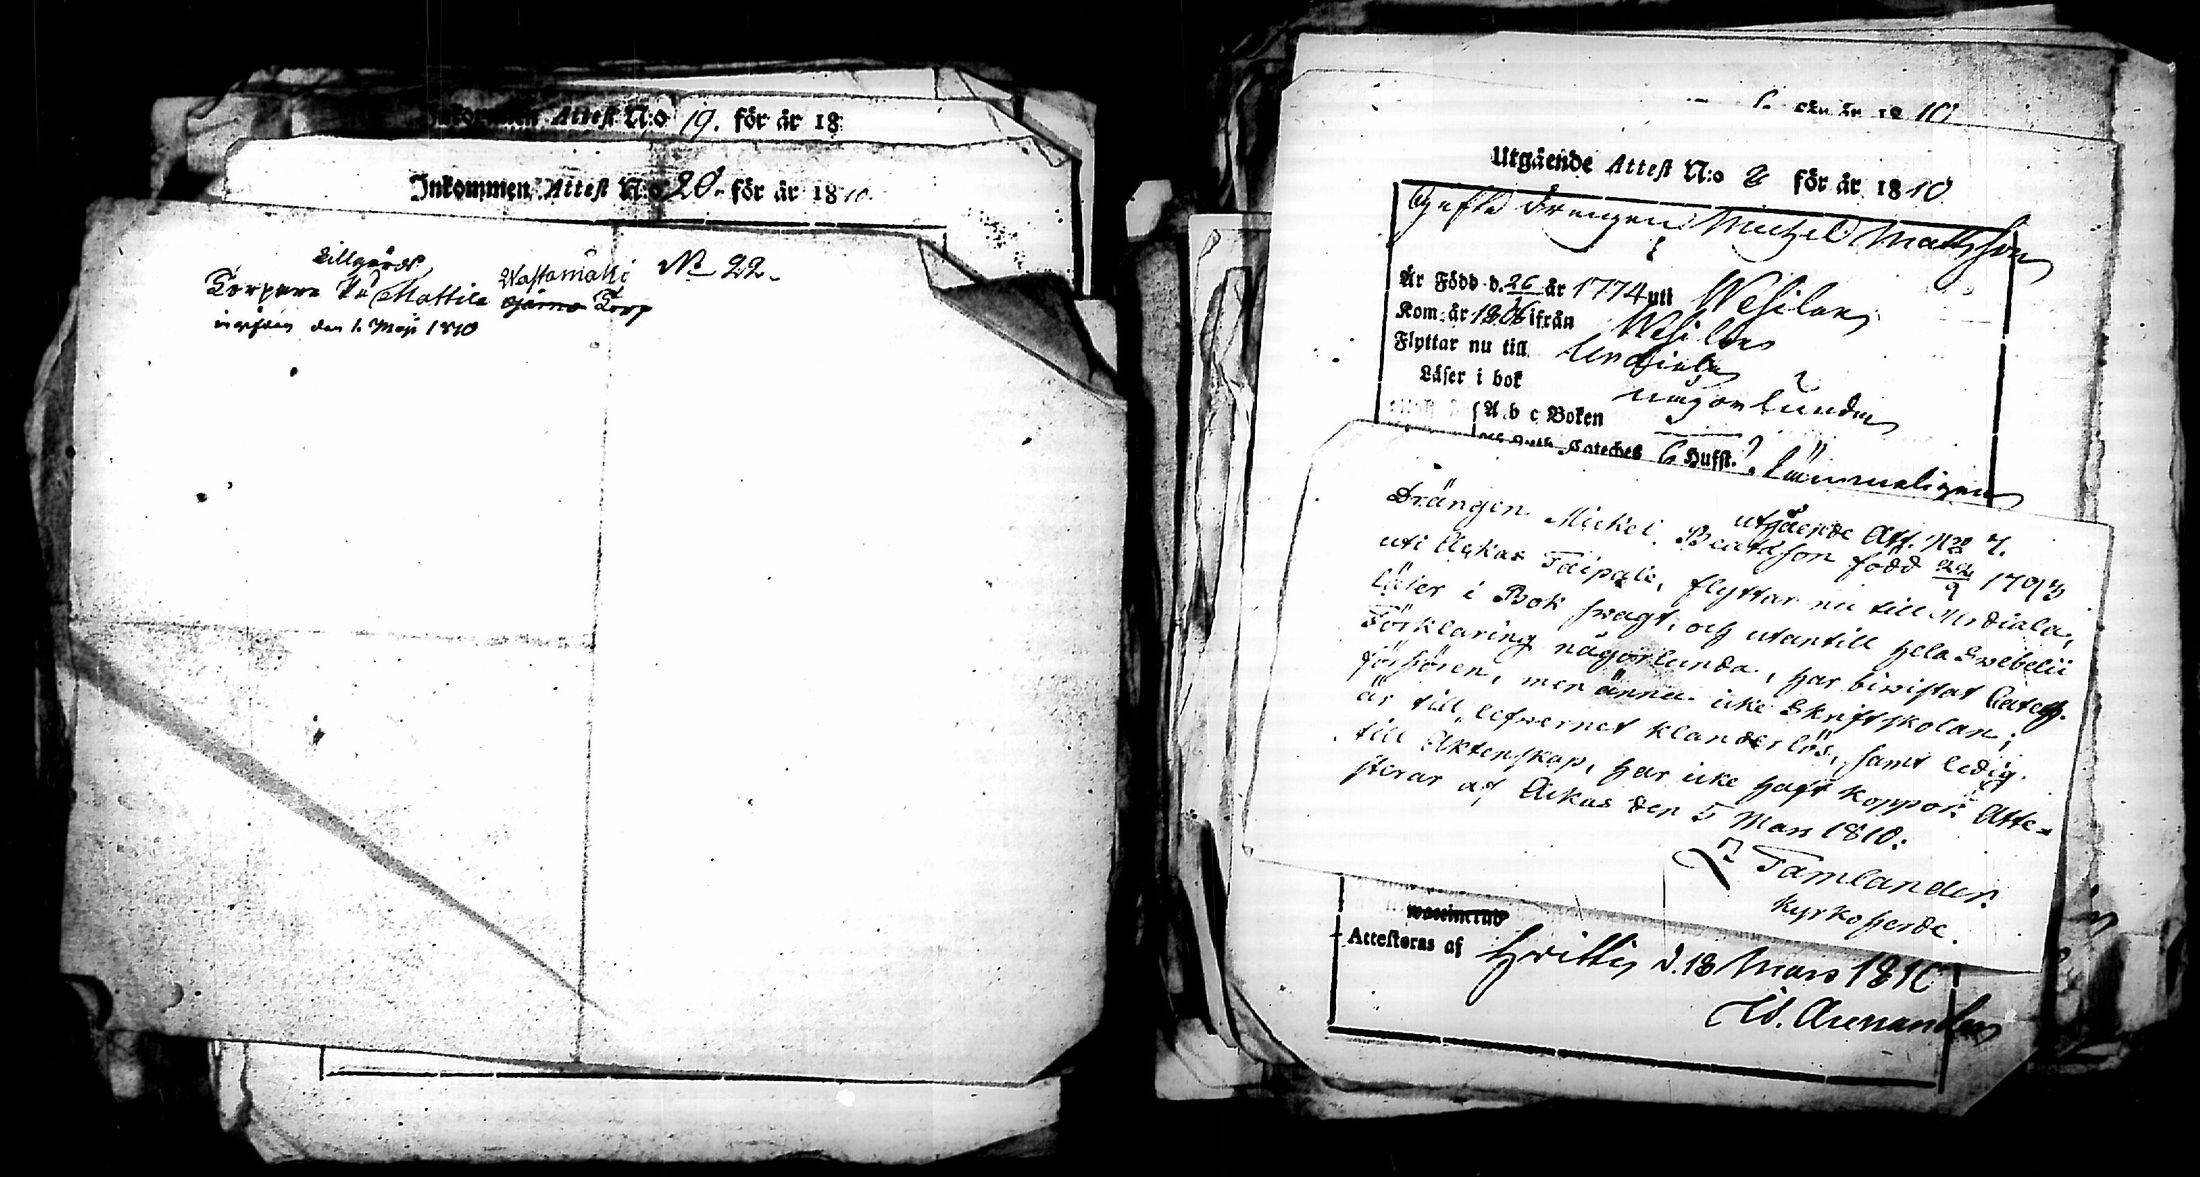 Inkommen Attest N:o 19. för år 18
Inkommen Attest N:o 20. för år 1810
Lillgårds
Torpare på Mattila Wastamäki N:o 22.
Torp
den 1. Maji 1810
för år 1810
Utgående Attest N:o 8 för år 1810
Gifte Drengen Michel Mattsson
Är Född d. 26 år 1774 uti Wesilax
Kom år 1806 ifrån Wesilax
Flyttar nu till Urdiala
Läser i bok någorlunda
A b c Boken
Cateches 6 Hufst.
utgående Att. N:o 7.
Drängen Mickel född 22/9 1793
uti Ackas Taipale, flyttar nu till Urdiala,
läser i Bok swagt, och utantill hela Swebelii
Förklaring någorlunda, har biwistat Catech.
förhören, men ännu icke Skriftskolan;
är till lefwernet klanderlös, samt ledig
till Äktenskap, har icke haft koppor. Atte=
sterar af Ackas den 5 Mars 1810:
Tamlander.
kyrkoherde.
waccinerad
Attesteras af Hvittis d. 18 Mars 1810